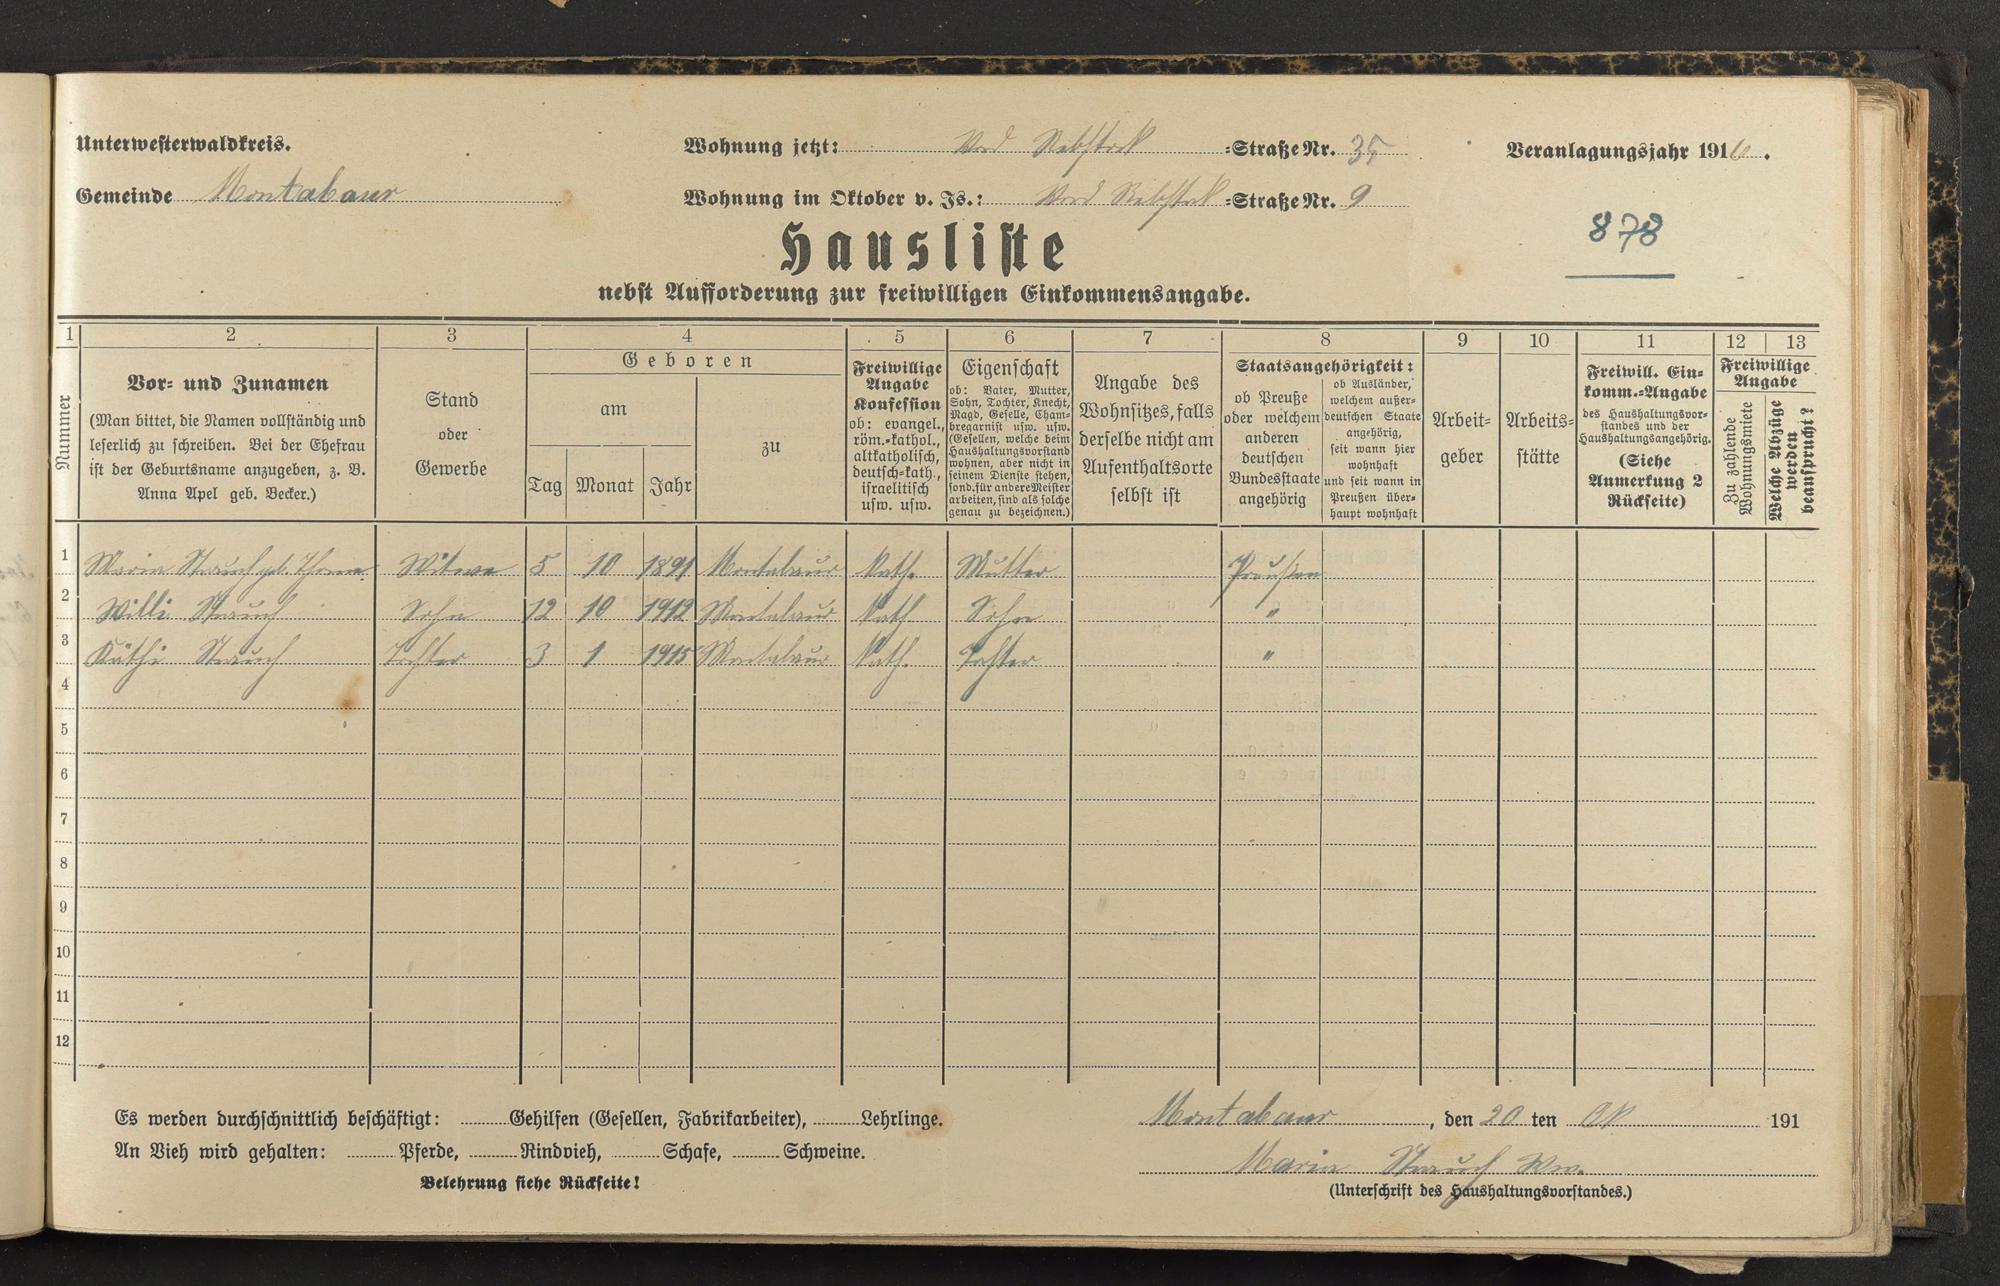 Unterwesterwaldkreis.
Wohnung jetzt: Vord Rebstock =Straße Nr. 35
Veranlagungsjahr 1916.
Gemeinde Montabaur
Wohnung im Oktober v. Js.: Vord Rebstock =Straße Nr. 9
878
Hausliste
nebst Aufforderung zur freiwilligen Einkommensangabe.
1 2 3 4 5 6 7 8 9 10 11 12 13
Nummer
Vor= und Zunamen
(Man bittet, die Namen vollständig und
leserlich zu schreiben. Bei der Ehefrau
ist der Geburtsname anzugeben, z. B.
Anna Apel geb. Becker.)
Stand
oder
Gewerbe
Geboren
am
zu
Tag Monat Jahr
Freiwillige
Angabe
Konfession
ob: evangel.,
röm.=kathol.,
altkatholisch,
deutsch=kath.,
israelitisch
usw. usw.
Eigenschaft
ob: Vater, Mutter,
Sohn, Tochter, Knecht,
Magd, Geselle, Cham-
bregarnist usw. usw.
(Gesellen, welche beim
Haushaltungsvorstand
wohnen, aber nicht in
seinem Dienste stehen,
sond. für andere Meister
arbeiten, sind als solche
genau zu bezeichnen.)
Angabe des
Wohnsitzes, falls
derselbe nicht am
Aufenthaltsorte
selbst ist
Staatsangehörigkeit:
ob Preuße
oder welchem
anderen
deutschen
Bundesstaate
angehörig
ob Ausländer,
welchem außer-
deutschen Staate
angehörig,
seit wann hier
wohnhaft
und seit wann in
Preußen über-
haupt wohnhaft
Arbeit=
geber
Arbeits=
stätte
Freiwill. Ein-
komm.=Angabe
des Haushaltungsvor-
standes und der
Haushaltungsangehörig.
(Siehe
Anmerkung 2
Rückseite)
Freiwillige
Angabe
Zu zahlende
Wohnungsmiete
Welche Abzüge
werden
beansprucht?
1 Maria Strauch geb. Thome Witwe 5 10 1891 Montabaur kath. Mutter Preußen
2 Willi Strauch Sohn 12 10 1912 Montabaur kath Sohn "
3 Käthi Strauch Tochter 3 1 1915 Montabaur kath. Tochter "
4
5
6
7
8
9
10
11
12
Es werden durchschnittlich beschäftigt: Gehilfen (Gesellen, Fabrikarbeiter), Lehrlinge.
Montabaur, den 20 ten Ok 191
An Vieh wird gehalten: Pferde, Rindvieh, Schafe, Schweine.
Maria Strauch Ww.
Belehrung siehe Rückseite!
(Unterschrift des Haushaltungsvorstandes.)